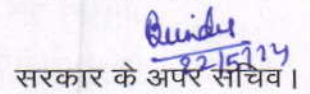 22/5/24
सरकार के अपर सचिव।